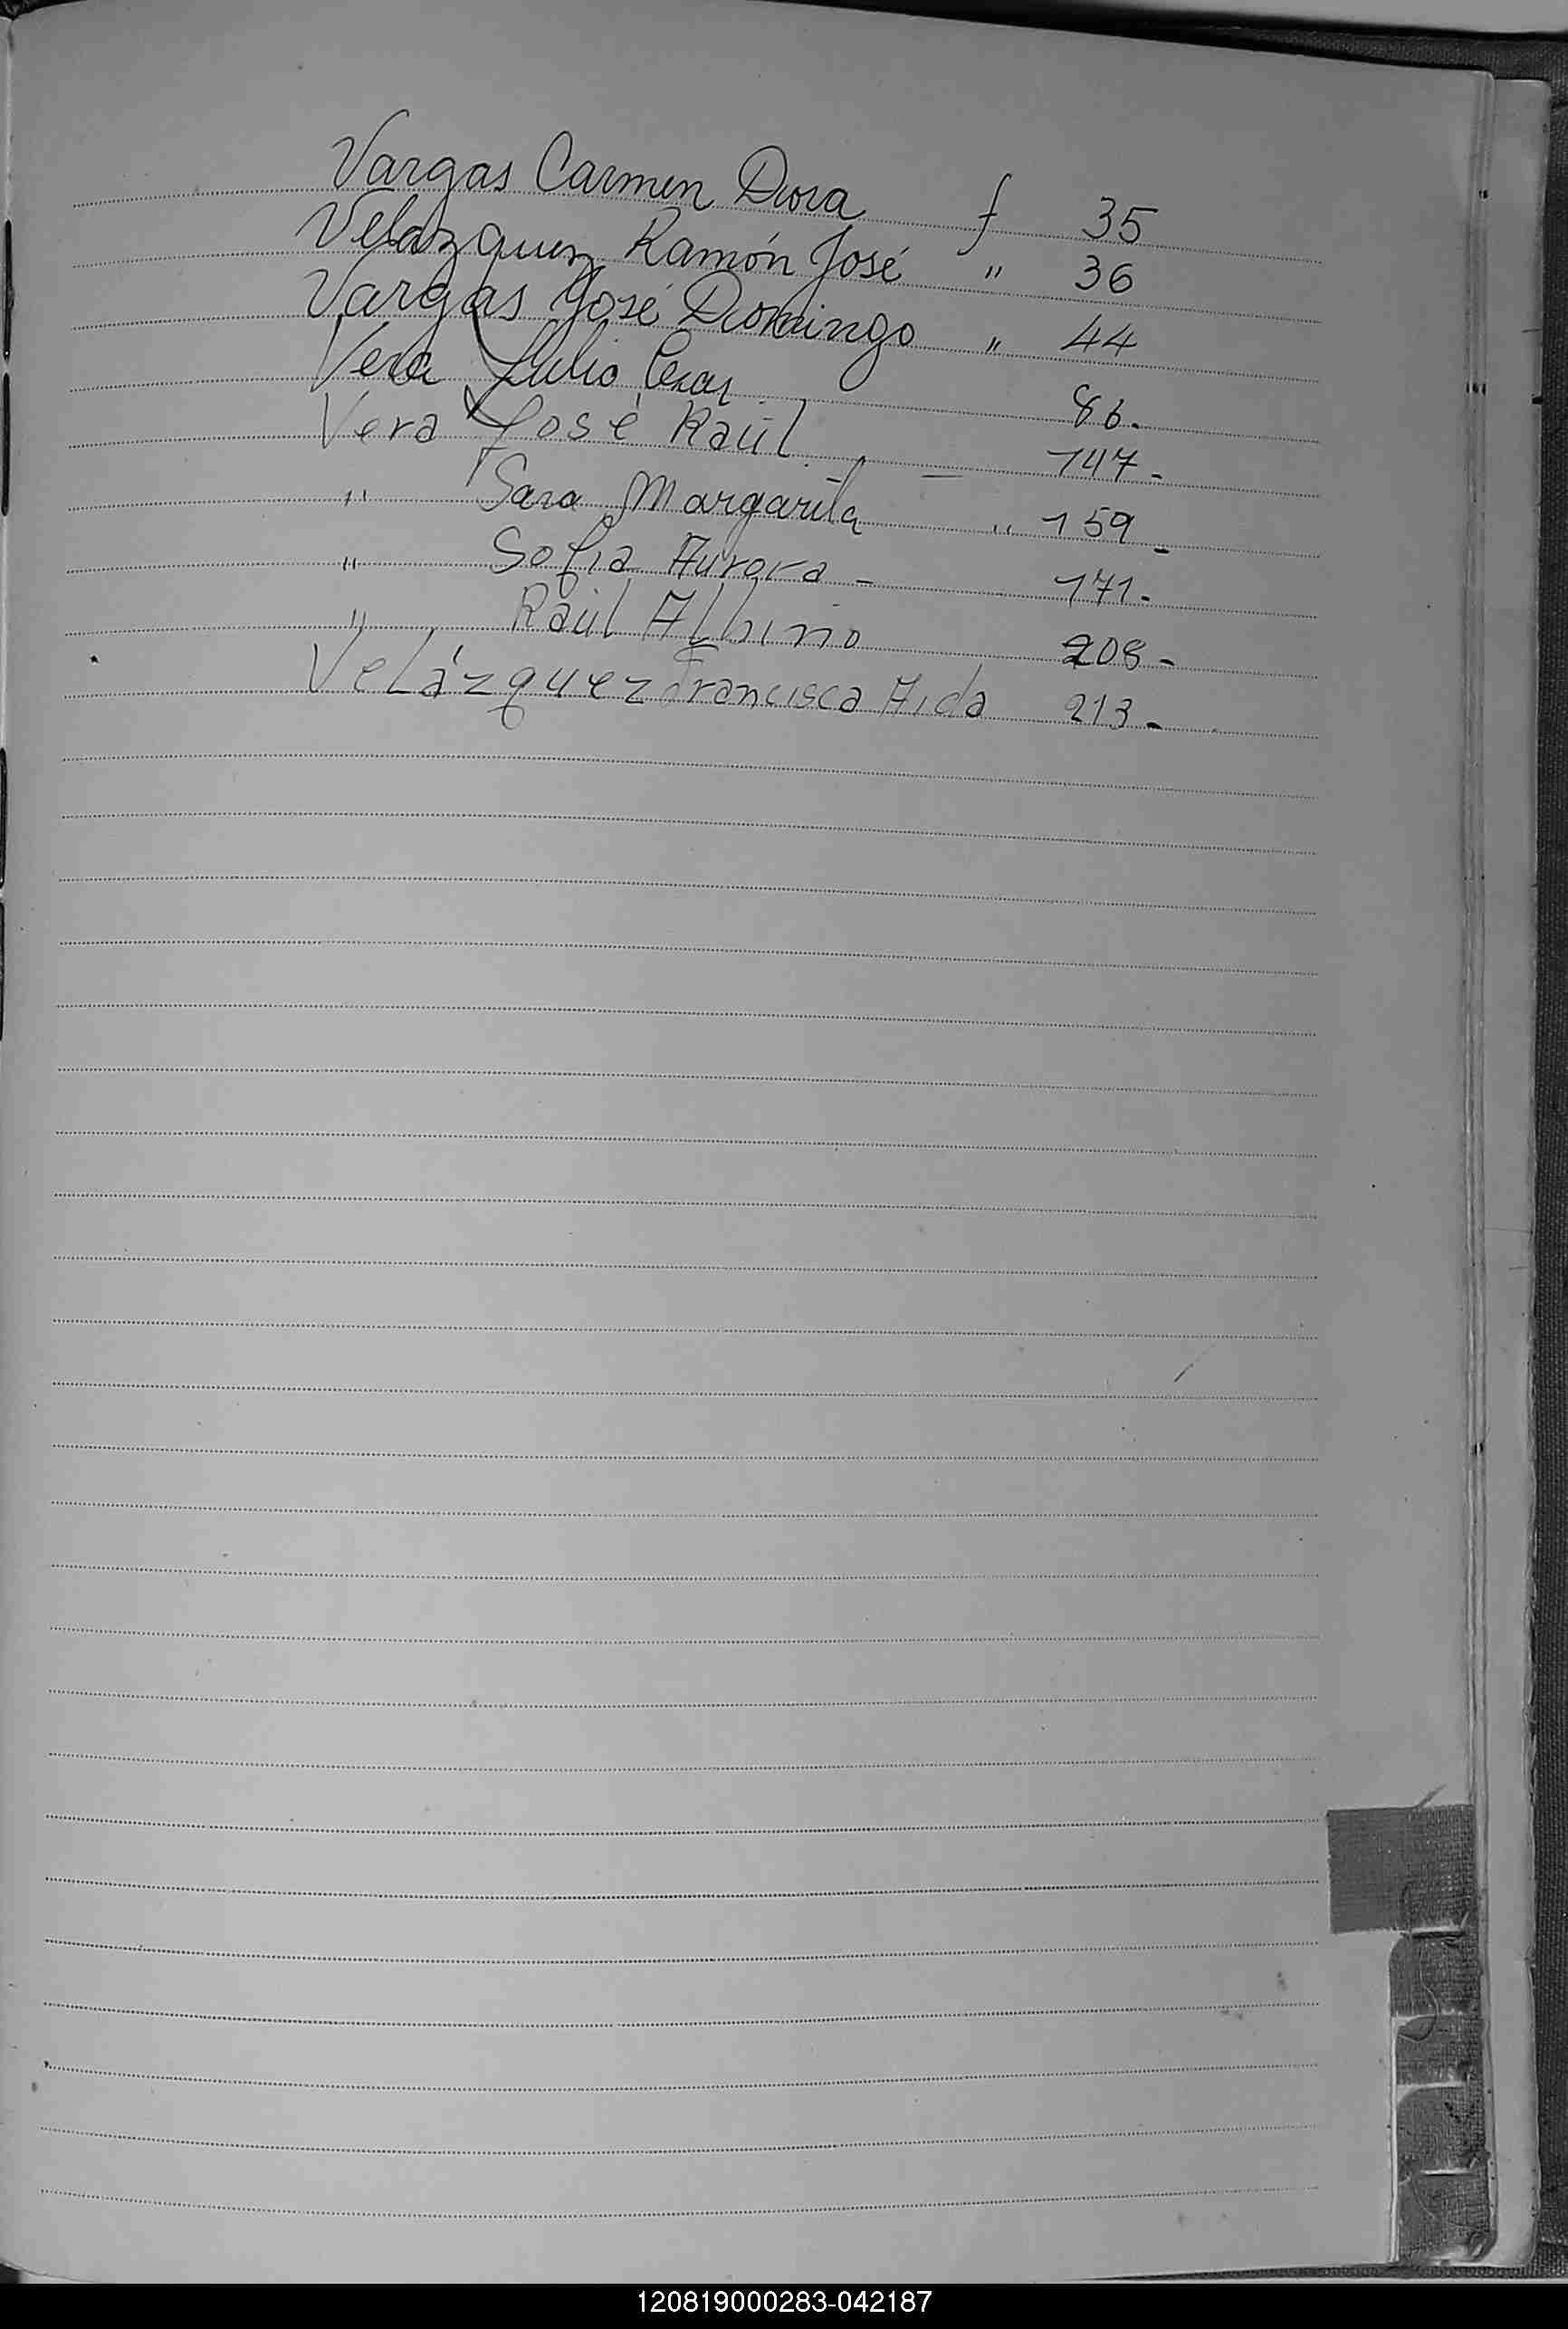 Vargas Carmen Dora f 35
Velazquez Ramón José " 36
Vargas José Domingo " 44
Vera Julio Cesar 86.
Vera José Raúl — 147-
" Sara Margarita " 159-
" Sofia Aurora - 171-
" Raúl Albino 208-
Velázquez Francisca Aida 213-
120819000283-042187